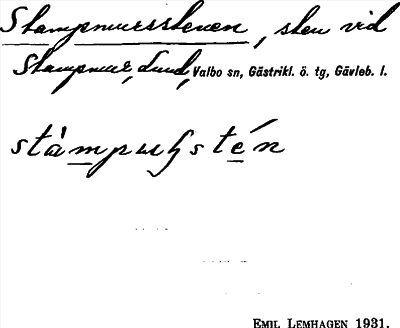 Stampmursstenen, sten vid
Stampmur, Lund, Valbo sn, Gästrikl. ö. tg, Gävleb. l.
EMIL LEMHAGEN 1931.